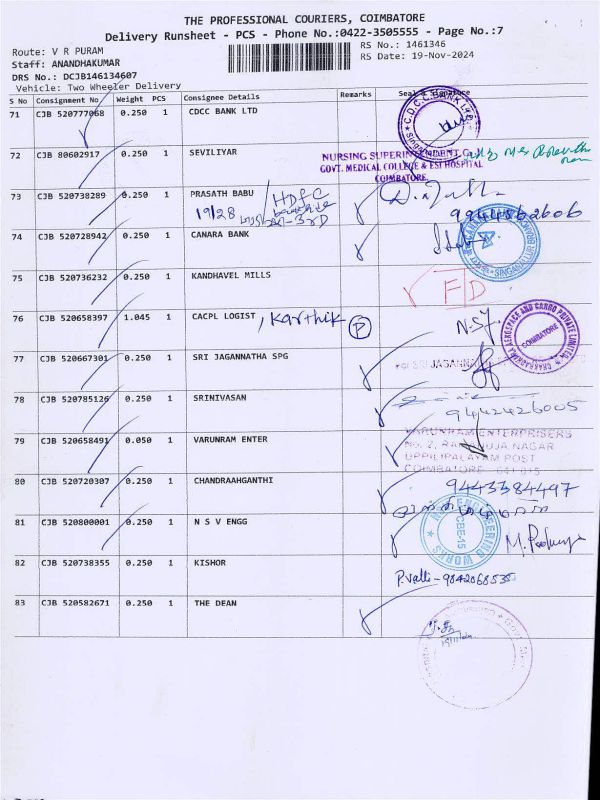 THE PROFESSIONAL COURIERS, COIMBATORE
Delivery Runsheet - PCS - Phone No.:0422-3505555 - Page No.:7
Route: V R PURAM
RS No.: 1461346
Staff: ANANDHAKUMAR
RS Date: 19-Nov-2024
DRS No.: DCJB146134607
Vehicle: Two Wheeler Delivery
S No Consignment No Weight PCS Consignee Details Remarks Seal & Signature
71 CJB 520777068 0.250 1 CDCC BANK LTD
72 CJB 80602917 0.250 1 SEVILIYAR
NURSING SUPERINTENDENT
GOVT. MEDICAL COLLEGE & ESI HOSPITAL
COIMBATORE.
73 CJB 520738289 0.250 1 PRASATH BABU HDFC
19/28
9944562606
74 CJB 520728942 0.250 1 CANARA BANK
SINGANALLUR
75 CJB 520736232 0.250 1 KANDHAVEL MILLS
FD
76 CJB 520658397 1.045 1 CACPL LOGIST, Karthik P
AEROSPACE AND CARGO PRIVATE LIMITED
COIMBATORE
77 CJB 520667301 0.250 1 SRI JAGANNATHA SPG
78 CJB 520785126 0.250 1 SRINIVASAN
9442426005
79 CJB 520658491 0.050 1 VARUNRAM ENTER
VARUNRAM ENTERPRISERS
No. 2, RAMANUJA NAGAR
UPPILIPALAYAM POST
COIMBATORE - 641 015
80 CJB 520720307 0.250 1 CHANDRAAHGANTHI
9443384497
81 CJB 520800001 0.250 1 N S V ENGG
ENGINEERING WORKS
CBE-15
82 CJB 520738355 0.250 1 KISHOR
P.Valli - 9842068535
83 CJB 520582671 0.250 1 THE DEAN